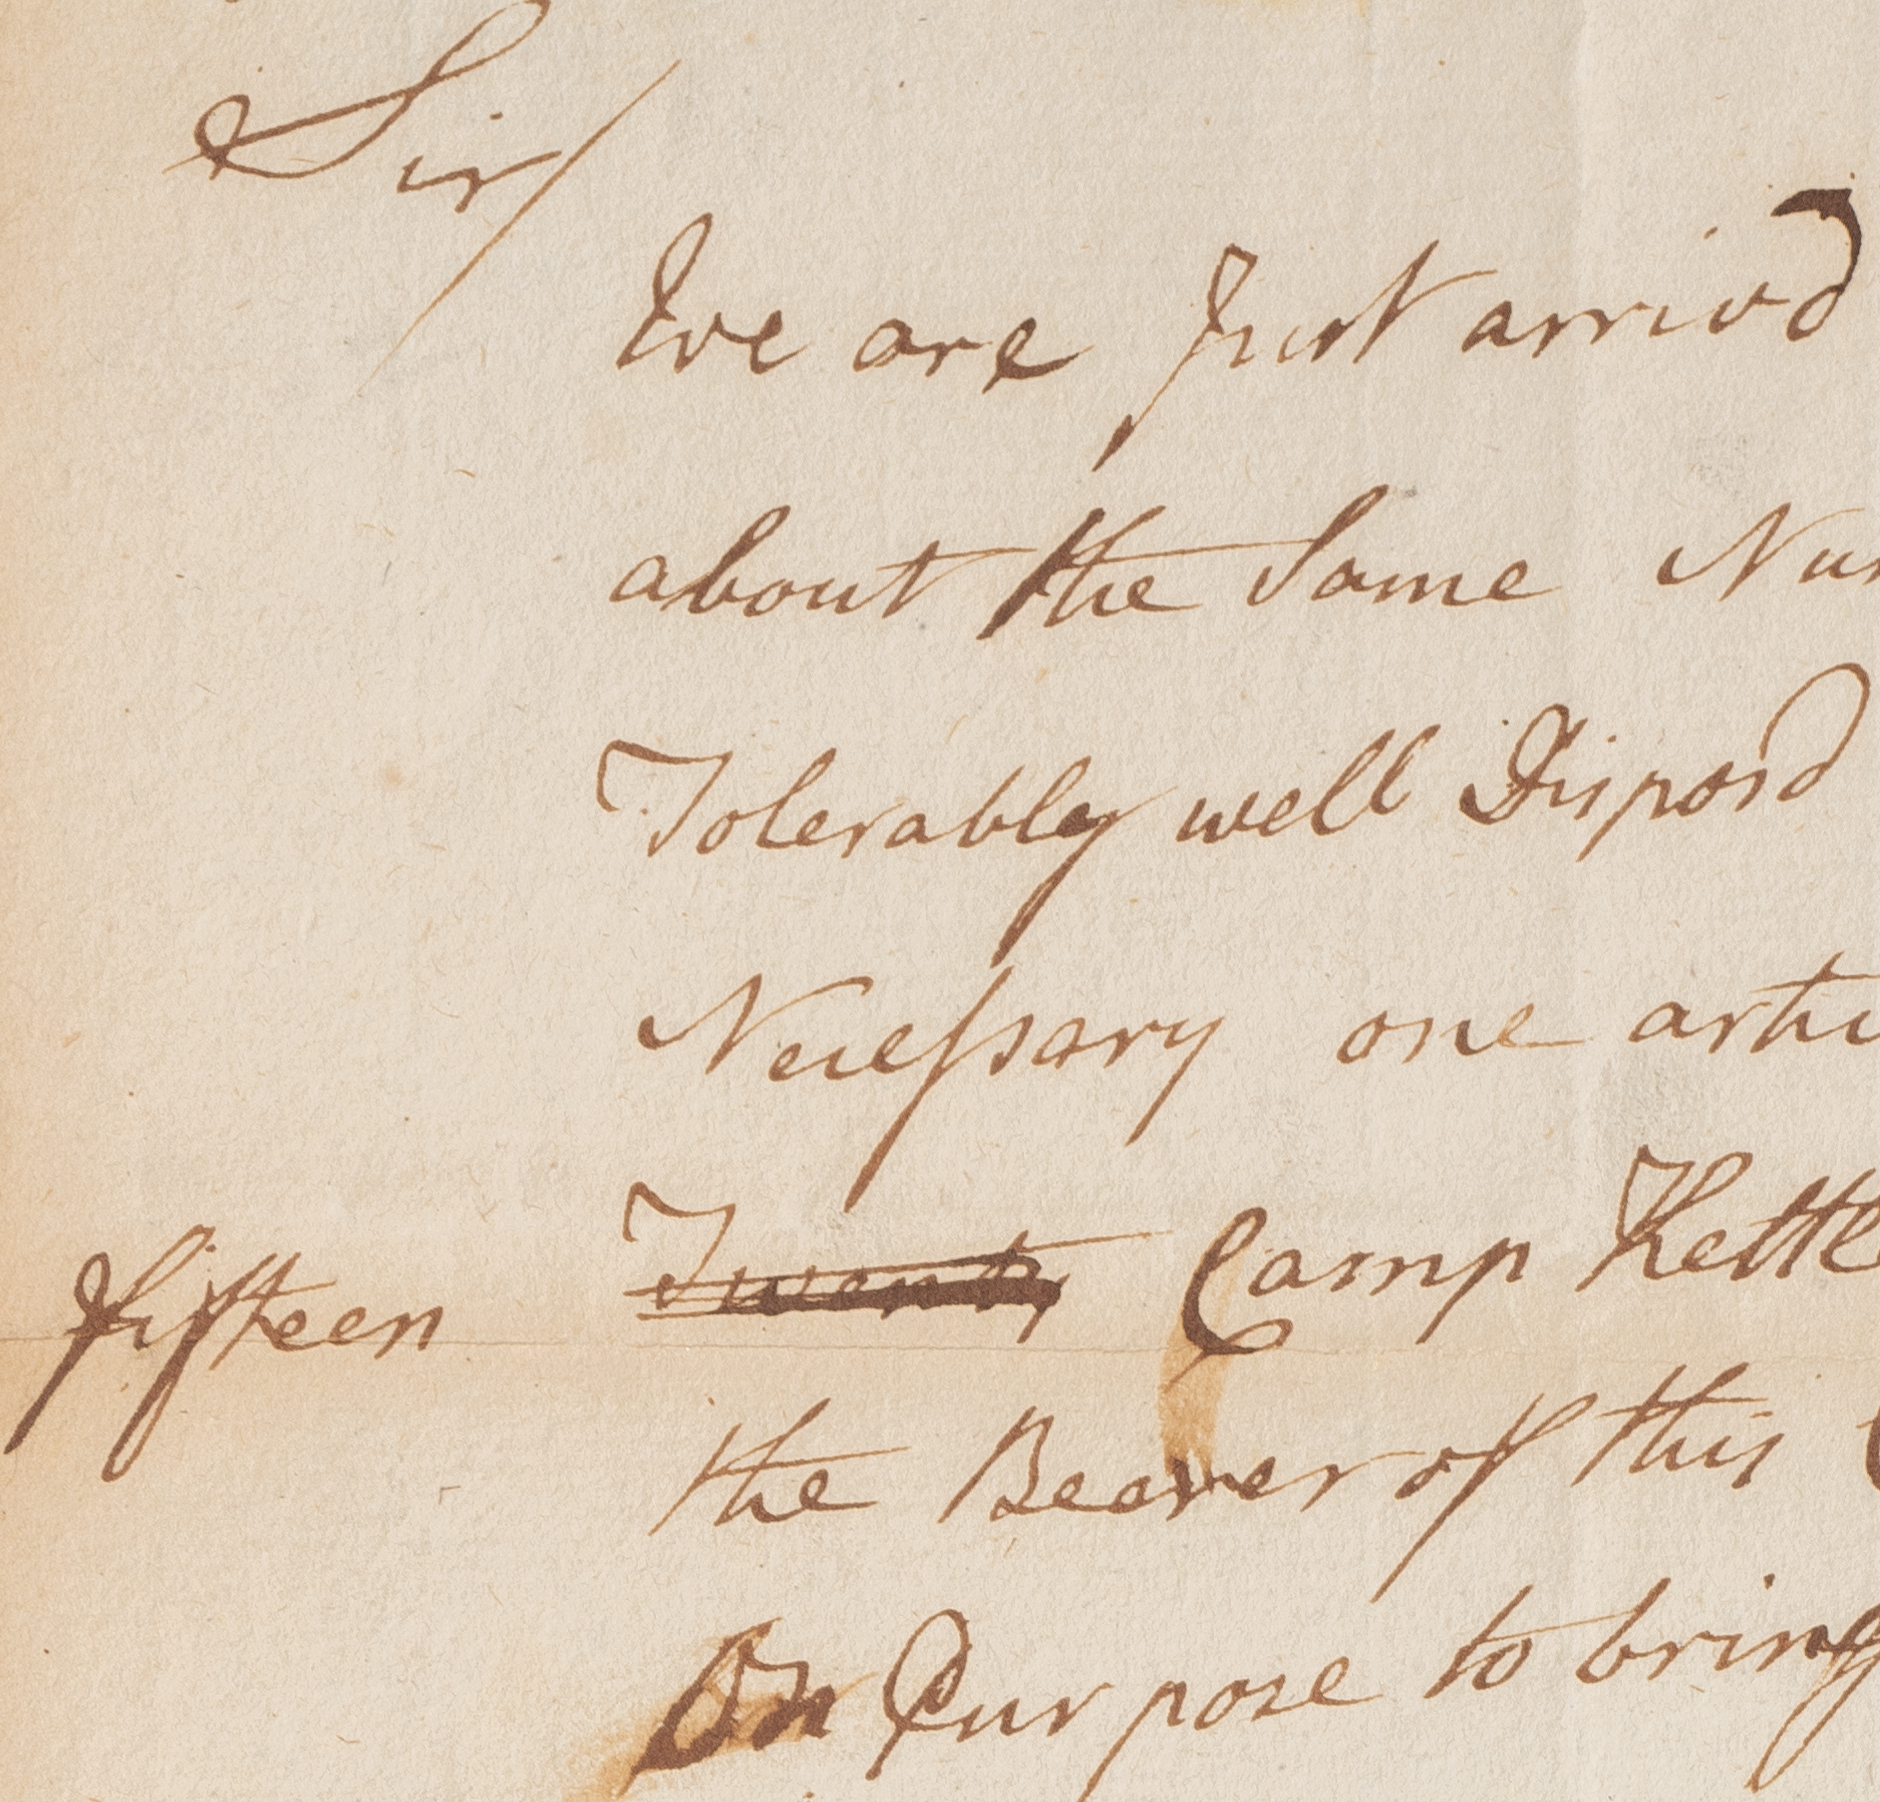 Sir/
We are Just arrivd
about the Same Num
Tolerabley well Disposd
Necessary one artic
fifteen Twenty Camp Kettle
the Bearer of this
On Purpose to bring